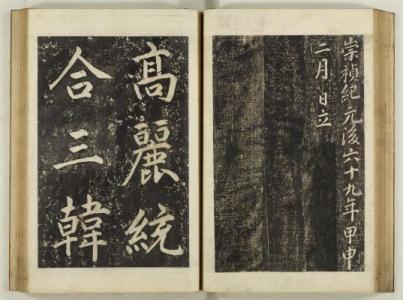 崇禎紀元後六十九年甲申
二月 日立
髙麗統
合三韓